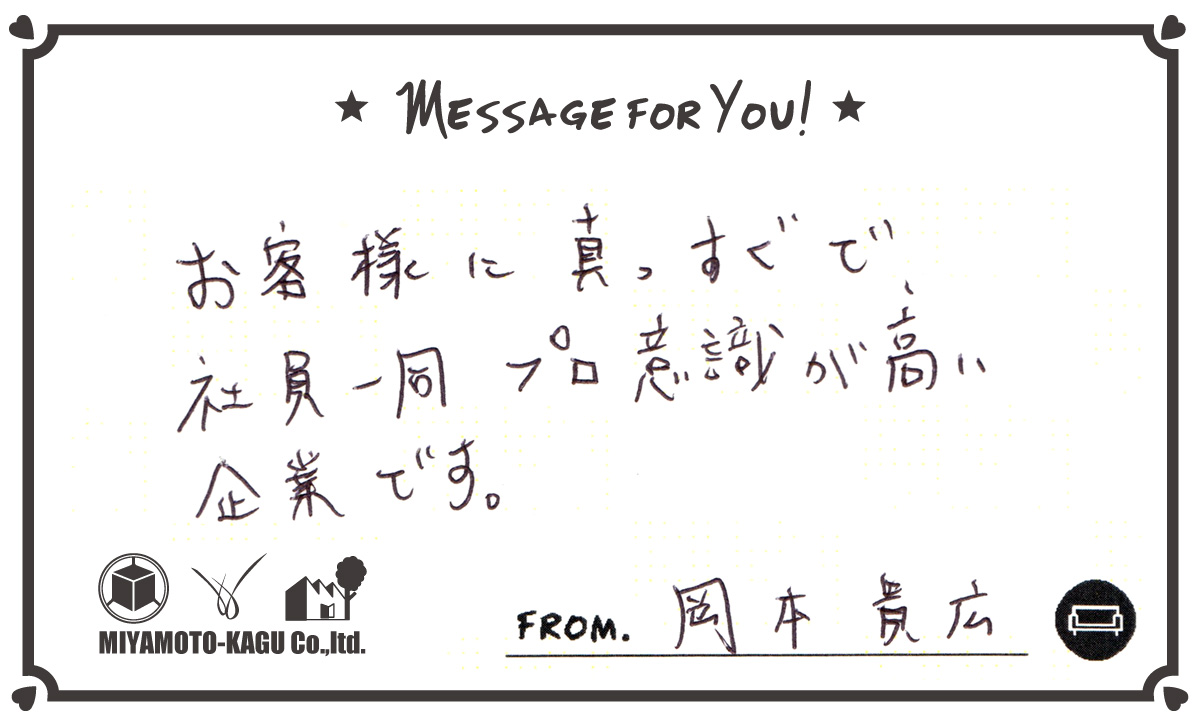 ★ MESSAGE FOR YOU! ★
お客様に真っすぐで、
社員一同 プロ意識が高い
企業です。
MIYAMOTO-KAGU Co.,ltd.
FROM. 岡本 貴広